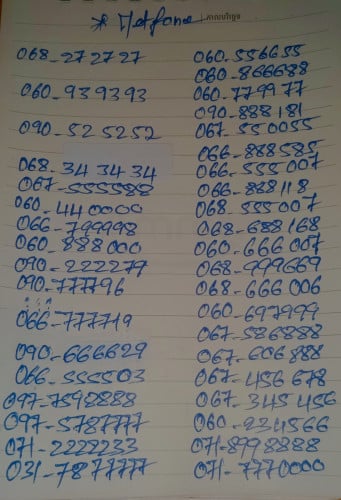 កាលបរិច្ឆេទ
* Metfone
068-27 27 27
060-93 93 93
090-52 52 52
068-34 34 34
067-555588
060-44 0000
066-799998
060-888 000
090-222277
090-777796
066-777719
090-666629
066-555503
097-7592888
097-5787777
071-2222233
031-78 77777
060-556655
060-866688
060-779977
090-888 181
067-550055
066-888585
066-555 007
066-888 118
068-555 007
068-688 168
060-666 007
068-999669
068-666 006
060-697999
067-586888
067-606 888
067-456 678
067-345 456
060-234566
071-8998888
071-7770000